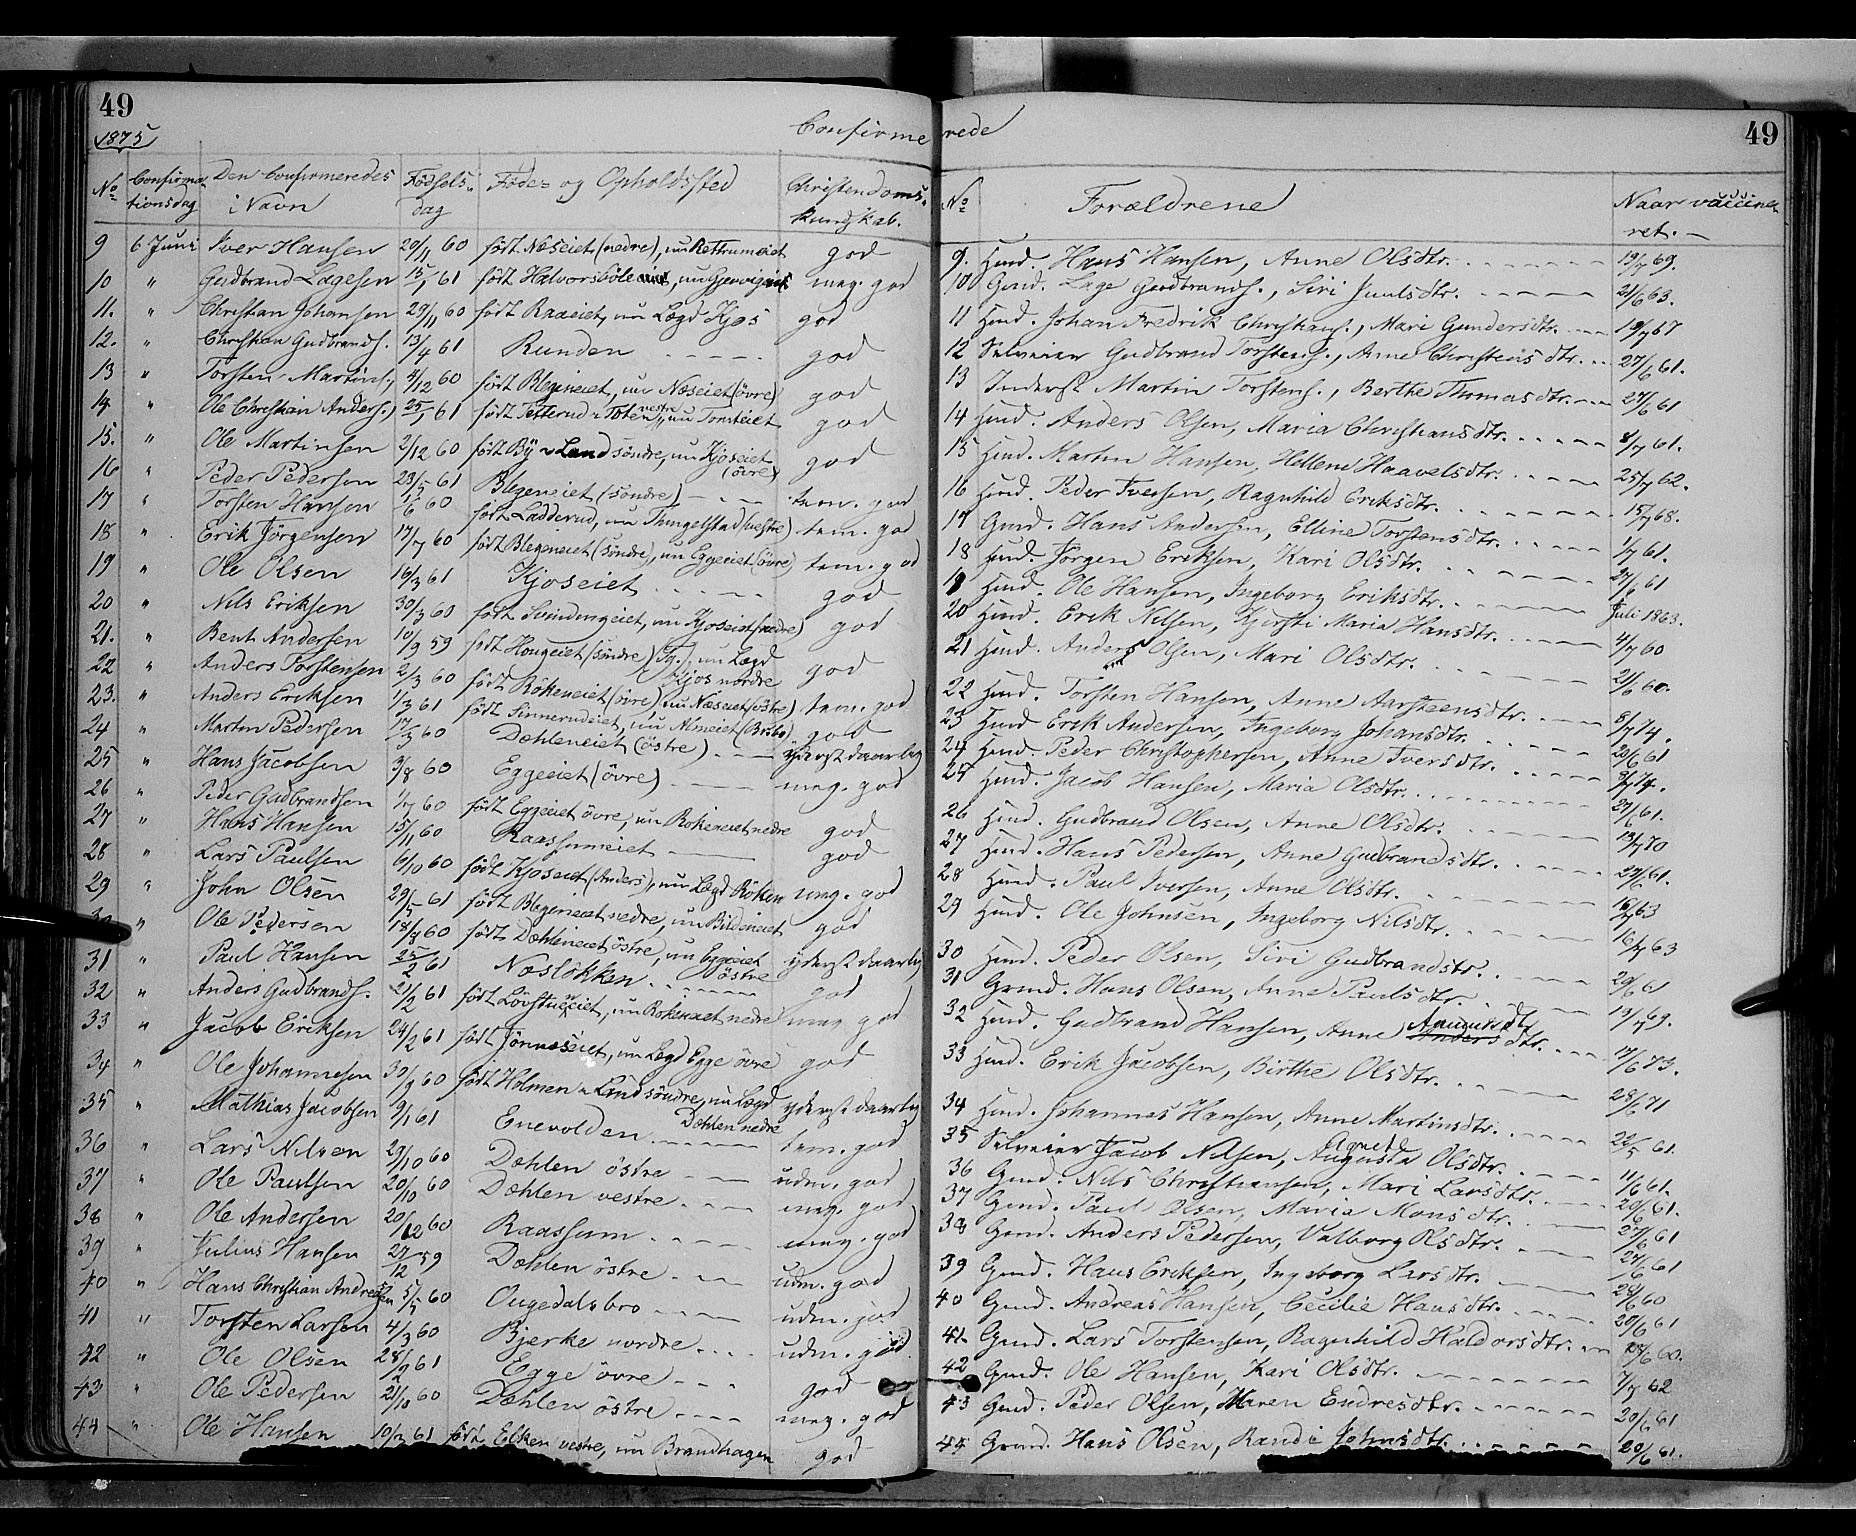 49
1875
Confirmerede
49
No Confirmationsdag Den Confirmeredes Navn Fødselsdag Føde- og Opholdssted Christendomskundskab. No Forældrene Naar vaccineret.
9 6 Juni Iver Hansen 20/1 60 født Næseiet (nedre), nu Rettrumeiet god 9. Husd. Hans Hansen, Anne Olsdtr. 19/7 69.
10 " Gudbrand Lagesen 15/1 61 født Halvorsböle, nu meg. god 10 Gmd. Lage Gudbrands., Siri Juulsdtr. 21/6 63.
11. " Christian Johansen 29/11 60 født Raaeiet, nu Lægd Kjos god 11 Husd. Johan Fredrik Christians., Mari Gundersdtr. 19/7 67
12. " Christian Gudbrands. 13/4 61 Runden god 12 Selveier Gudbrand Torstens., Anne Christensdtr. 27/6 61.
13 " Torsten Martins. 4/12 60 født Blegeneiet, nu Næseiet (övre) god 13 Inderst Martin Torstens., Berthe Thomasdtr. 27/6 61
14 " Ole Christian Anders. 25/5 61 født Tetterud i Toten vestre, nu Tomteiet god 14 Husd. Anders Olsen, Maria Christiansdtr. 8/7 61.
15. " Ole Martinsen 2/12 60 født By i Land söndre, nu Kjoseiet (övre) god 15 Husd. Martin Hansen, Hellene Haavelsdtr. 25/7 62.
16 " Peder Pedersen 23/5 61 Blegeneiet (söndre) tem. god 16 Husd. Peder Iversen, Ragnhild Eriksdtr. 15/7 68.
17 " Torsten Hansen 1/6 60 født Ladderud, nu Thingelstad (vestre) tem. god 17 Gmd. Hans Andersen, Elline Torstensdtr. 1/7 61.
18 " Erik Jörgensen 17/7 60 født Blegeneiet (söndre), nu Eggeeiet (övre) tem. god 18 Husd. Jörgen Eriksen, Kari Olsdtr. 27/6 61
19 " Ole Olsen 16/3 61 Kjoseiet god 19 Husd. Ole Hansen, Ingeborg Eriksdtr. Juli 1863.
20 " Nils Eriksen 30/3 60 født Svindingeiet, nu Kjoseiet (nedre) god 20 Husd. Erik Nilsen, Kjersti Maria Hansdtr. 4/7 60
21. " Bent Andersen 10/9 59 født Hougeiet (söndre) Tg., nu Lægd Kjos nordre god 21 Husd. Anders Olsen, Mari Olsdtr. 21/6 60.
22 " Anders Torstensen 2/3 60 født Rökeneiet (övre), nu Næseiet (östre) tem. god 22 Husd. Torsten Hansen, Anne Aarsteensdtr. 8/7 74.
23. " Anders Eriksen 1/3 61 født Sinnerudeiet, nu Almeiet (Bråbö) god 23 Husd Erik Andersen, Ingeborg Johansdtr. 20/6 61
24 " Martin Pedersen 17/5 60 Dæhleneiet (östre) yderst daarlig 24 Husd. Peder Christophersen, Anne Iversdtr. 8/7 74.
25 " Hans Jacobsen 3/8 60 Eggeeiet (övre) meg. god 25 Husd. Jacob Hansen, Maria Olsdtr. 27/6 61.
26 " Peder Gudbrandsen 1/7 60 født Eggeeiet övre, nu Rökeneiet nedre god 26 Husd. Gudbrand Olsen, Anne Olsdtr. 13/7 70
27 " Hans Hansen 15/11 60 Raassumeiet god 27 Husd. Hans Pedersen, Anne Gudbrandsdtr. 29/6 61.
28 " Lars Paulsen 6/10 60 født Kjoseiet (Anders), nu Lægd Röken meg. god 28 Husd. Paul Iversen, Anne Olsdtr. 16/7 63
29 " John Olsen 29/5 61 født Blegeneiet nedre, nu Bildeneiet god 29 Husd. Ole Johnsen, Ingeborg Nilsdtr. 16/7 63
30 " Ole Pedersen 18/8 60 født Dæhleneiet östre, nu Eggeeiet östre yderst daarlig 30 Husd. Peder Olsen, Siri Gudbrandsdtr. 20/6 61
31 " Paul Hansen 25/2 61 Næslökken god 31 Grmd. Hans Olsen, Anne Paulsdtr. 13/7 69.
32 " Anders Gudbrands. 21/2 61 født Lövstueeiet, nu Rökeneiet nedre meg god 32 Husd. Gudbrand Hansen, Anne Amundsdtr 17/6 73.
33 " Jacob Eriksen 24/2 61 født Jörnaseiet, nu Lægd Egge övre god 33 Husd. Erik Jacobsen, Birthe Olsdtr. 28/6 71
34 " Ole Johannesen 30/9 60 født Holmen i Land söndre, nu Lægd Dæhlen nedre yderst daarlig 34 Husd. Johannes Hansen, Anne Martinsdtr. 22/5 61.
35 " Mathias Jacobsen 9/1 61 Enevolden tem. god 35 Selveier Jacob Nilsen, Augusta Olsdtr. 11/6 61.
36 " Lars Nilsen 29/10 60 Dæhlen östre udm. god 36 Gmd. Nils Christiansen, Mari Larsdtr. 20/6 61.
37 " Ole Paulsen 20/10 60 Dæhlen vestre meg. god 37 Gmd. Paul Olsen, Maria Monsdtr. 27/6 61
38 " Ole Andersen 20/12 60 Raassum meg. god 38 Gmd. Anders Pedersen, Valborg Olsdtr. 27/6 61
39 " Julius Hansen 27/12 59 Dæhlen östre udm. god 39 Gmd. Hans Eriksen, Ingeborg Larsdtr. 28/6 60
40 " Hans Christian Andreassen 5/5 60 Ougedalsbro udm. god 40 Gmd. Andreas Hansen, Cecilie Hansdtr. 20/6 61
41 " Torsten Larsen 4/3 60 Bjerke nordre udm. god 41. Gmd. Lars Torstensen, Ragnhild Haldorsdtr. 28/6 60.
42 " Ole Olsen 28/2 61 Egge övre god 42 Gmd. Ole Hansen, Kari Olsdtr. 7/7 62
43 " Ole Pedersen 21/10 60 Dæhlen östre meg. god 43 Gmd. Peder Olsen, Maren Endresdtr. 20/6 61
44 " Ole Hansen 10/2 61 født Elken vestre, nu Brandhagen god 44 Grmd. Hans Olsen, Randi Johnsdtr. 20/6 61.